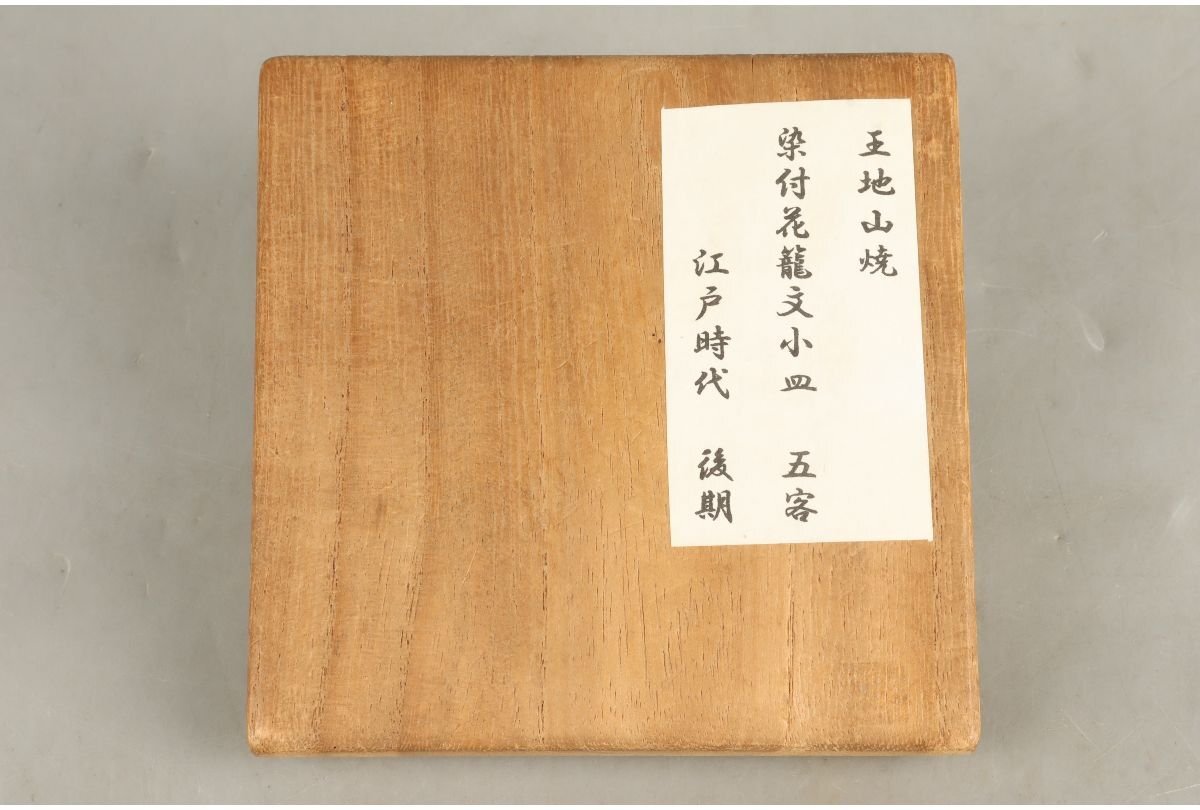 王地山焼
染付花籠文小皿 五客
江戸時代 後期